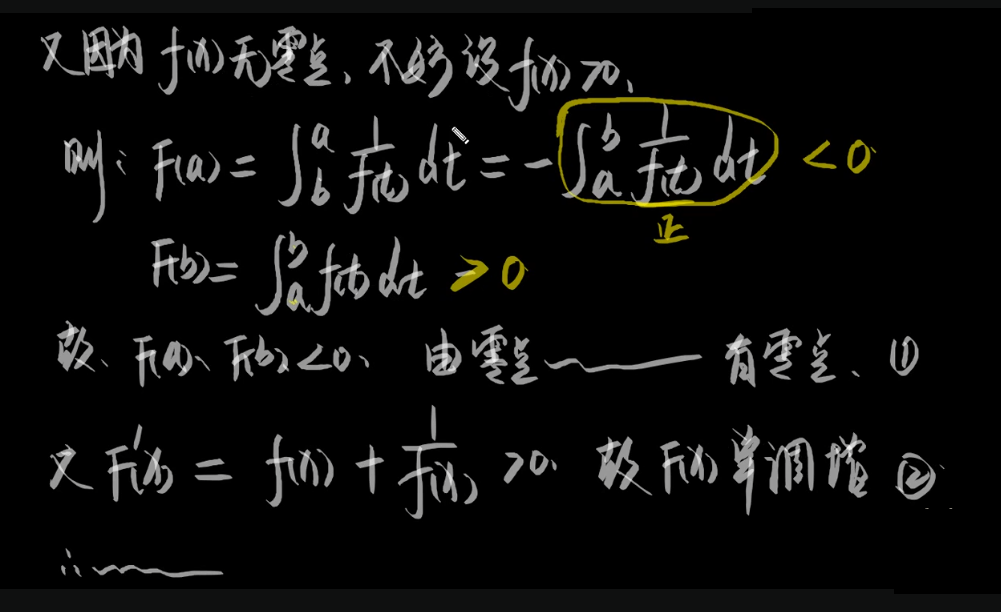 又因为 f(x) 无零点、不妨设 f(x) >0、
则: F(a) = ∫_b^a 1/f(t) dt = - ∫_a^b 1/f(t) dt < 0
正
F(b) = ∫_a^b f(t) dt > 0
故、F(a)、F(b) <0、 由零点 有零点、①
又 F'(x) = f(x) + 1/f(x) >0、 故 F(x) 单调增 ②
∴